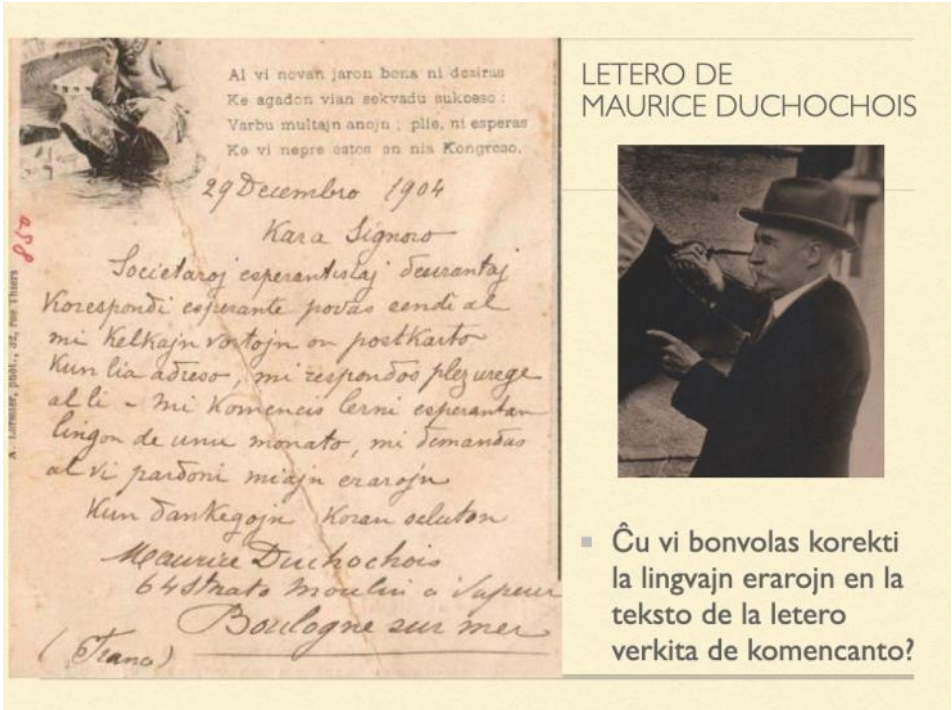 Al vi novan jaron bona ni deziras
Ke agadon vian sekvadu sukceso :
Varbu multajn anojn ; plie, ni esperas
Ke vi nepre estos en nia Kongreso.
29 Decembro 1904
Kara Signoro
Societaroj esperantistaj deurantaj
Korespondi esperante povas sendi al
mi Kelkajn vortojn on postKarto
Kun lia adreso, mi respondos plezurege
al li - mi Komencis lerni esperantan
lingon de unu monato, mi demandas
al vi pardoni miajn erarojn
Kun dankegojn Koran saluton
Maurice Duchochois
64 Strato Moulin a Vapeur
Boulogne sur mer
(Franc)
a58
A. Lormier, phot., 32, rue Thiers
LETERO DE
MAURICE DUCHOCHOIS
Ĉu vi bonvolas korekti
la lingvajn erarojn en la
teksto de la letero
verkita de komencanto?